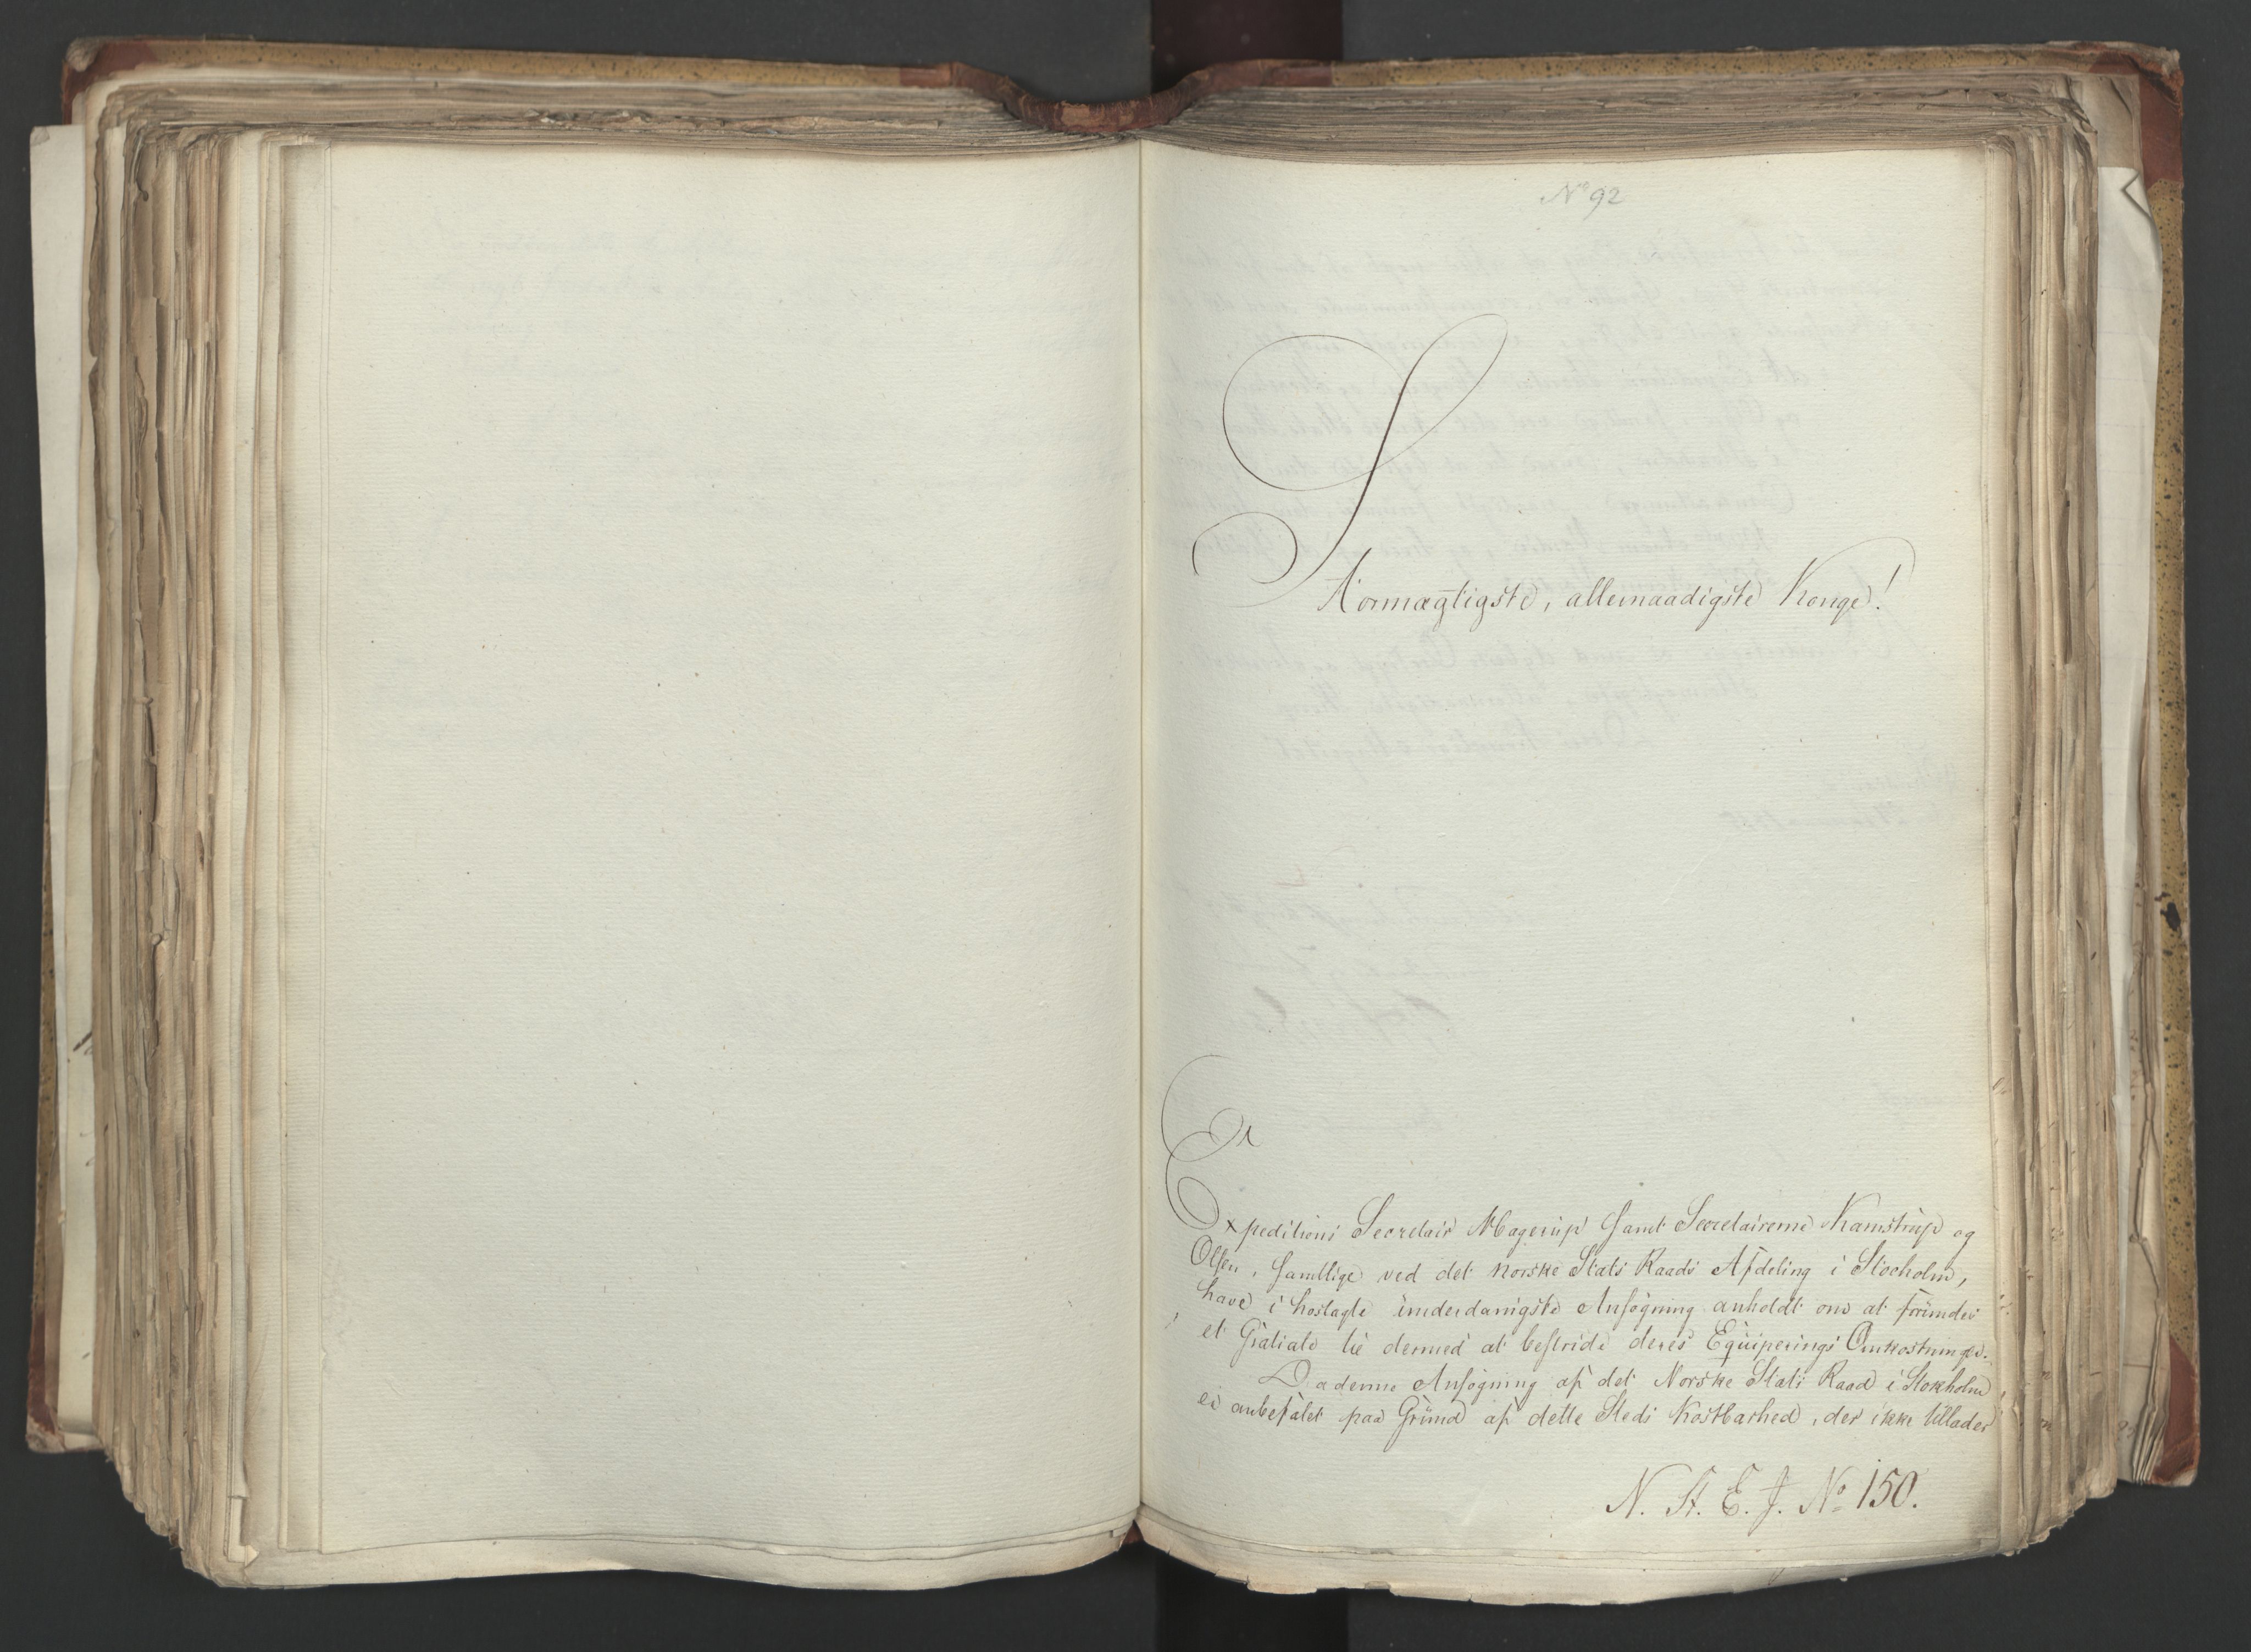 No 92
Stormægtigste, allernaadigste Konge!
Expeditions Secretair Magerup samt Secretairerne Kamstrup og
Olsen, samtlige ved det norske Stats Raads Afdeling i Stocholm,
have i hoslagte underdanigste Ansøgning anholdt om at forundes
et Gratiale til dermed at bestride deres Equiperings Omkostninger.
Da denne Ansøgning af det Norske Stats Raad i Stokholm
er anbefalet paa Grund af dette Steds Kostbarhed, der ikke tillader
N. St. E. J. No 150.